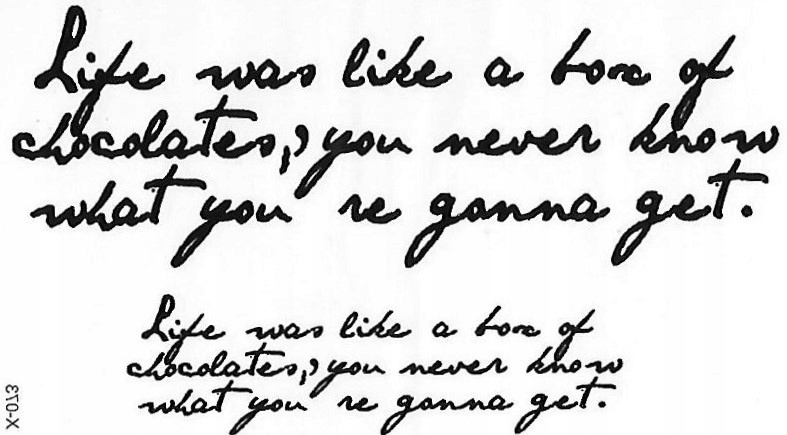 Life was like a box of
chocolates, you never know
what you re gonna get.
Life was like a box of
chocolates, you never know
what you re gonna get.
X-073